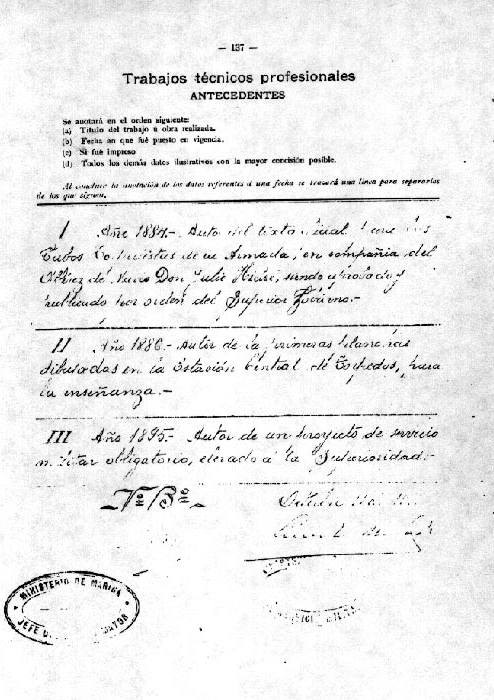 — 137 —
Trabajos técnicos profesionales
ANTECEDENTES
Se anotará en el orden siguiente:
(a) Título del trabajo ú obra realizada.
(b) Fecha en que fué puesto en vigencia.
(c) Si fué impreso
(d) Todos los demás datos ilustrativos con la mayor concisión posible.
Al concluir la anotación de los datos referentes á una fecha se trazará una línea para separarlos
de los que siguen.
I Año 1884.- Autor del texto oficial para los
Tubos de la Armada, en compañía del
de Navío Don Julio siendo aprobado y
publicado por orden del Superior Gobierno.-
II Año 1886.- Autor de las primeras planchas
dibujadas en la Estación Central de Torpedos, para
la enseñanza.-
III Año 1895.- Autor de un proyecto de servicio
militar obligatorio, elevado á la Superioridad.-
Vº Bº
MINISTERIO DE MARINA
JEFE